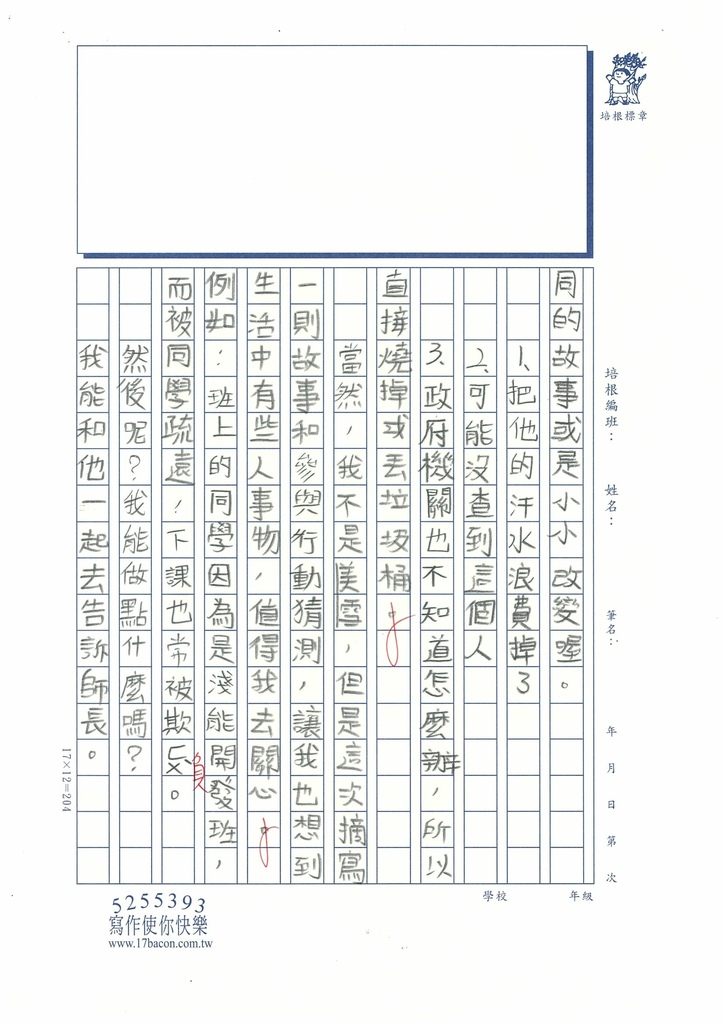 培根標章
培根編班：
姓名：
筆名：
年 月 日 第 次
學校
年級
同的故事或是小小改變喔。
1、把他的汗水浪費掉3
2、可能沒查到這個人
3、政府機關也不知道怎麼辦，所以
直接燒掉或丟垃圾桶
當然，我不是美雪，但是這次摘寫
一則故事和參與行動猜測，讓我也想到
生活中有些人事物，值得我去關心
例如：班上的同學因為是淺能開發班，
而被同學疏遠，下課也常被欺ㄈㄨ。
負
然後呢？我能做點什麼嗎？
我能和他一起去告訴師長。
17×12=204
5255393
寫作使你快樂
www.17bacon.com.tw